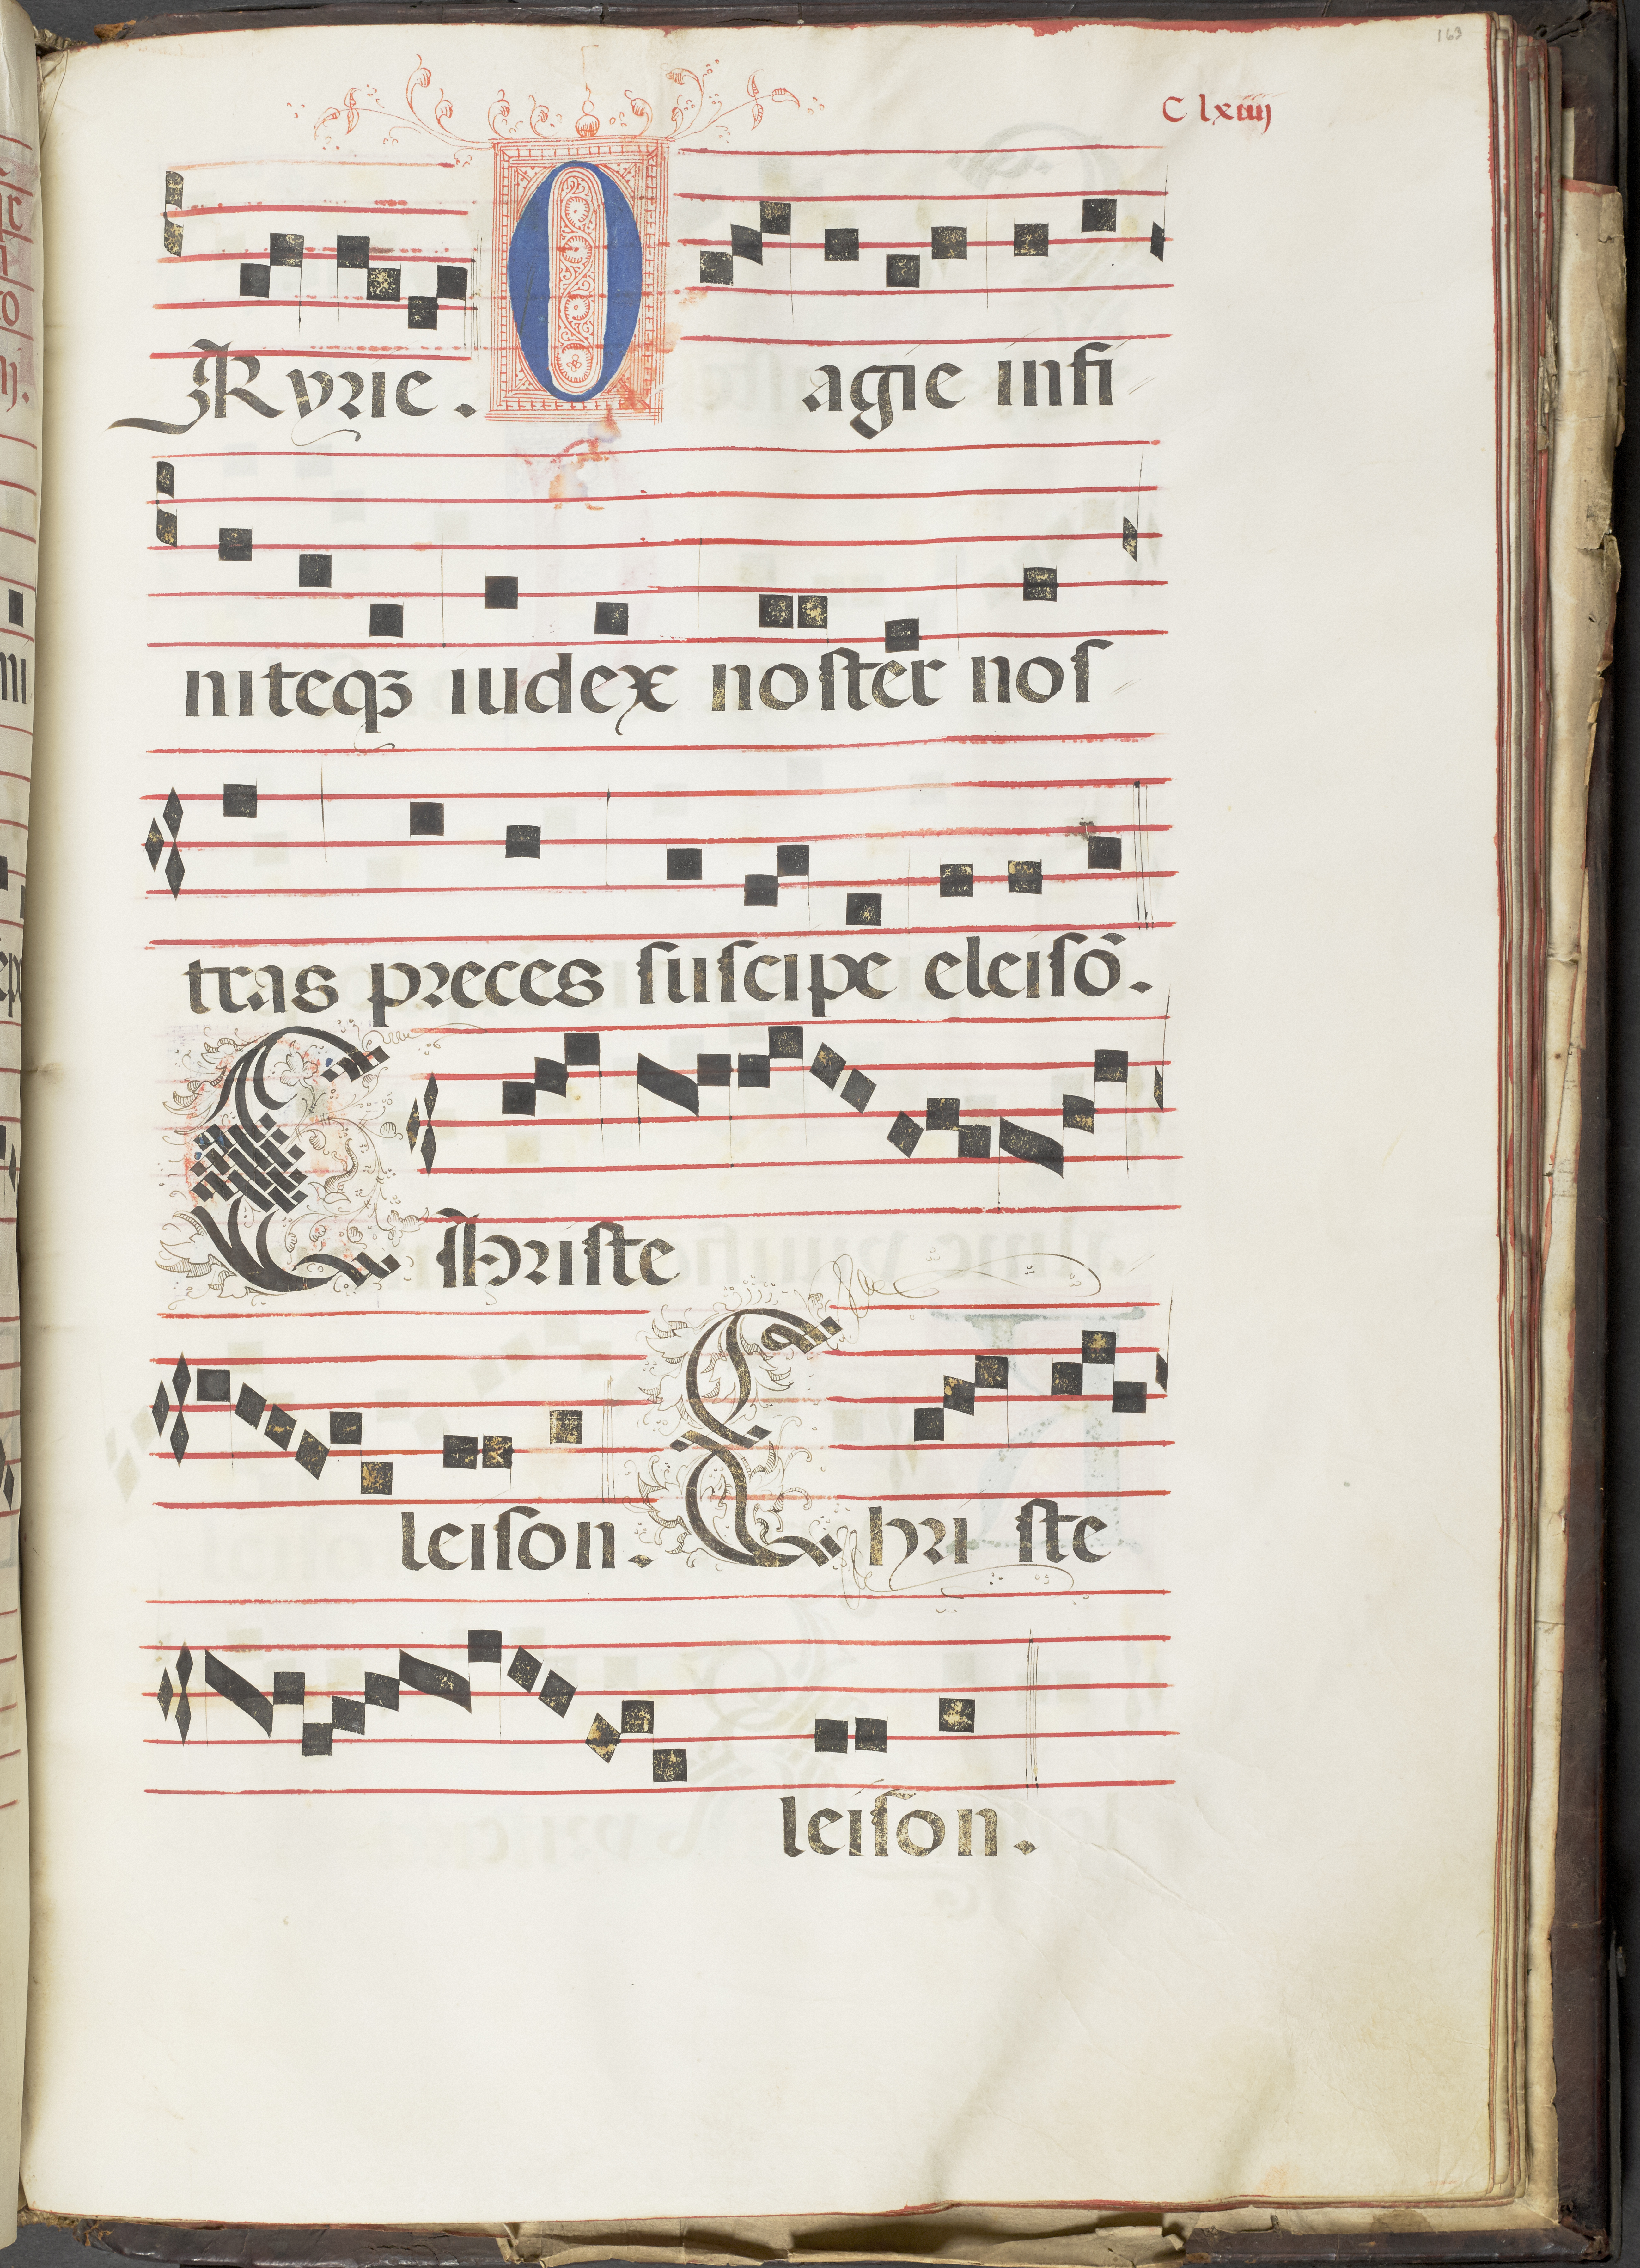 163
C lxiiij
Kyrie. O agie infi
niteqꝫ iudex noſter noſ
tras preces ſuſcipe eleiſō.
Chriſte
leiſon. Chriſte
leiſon.